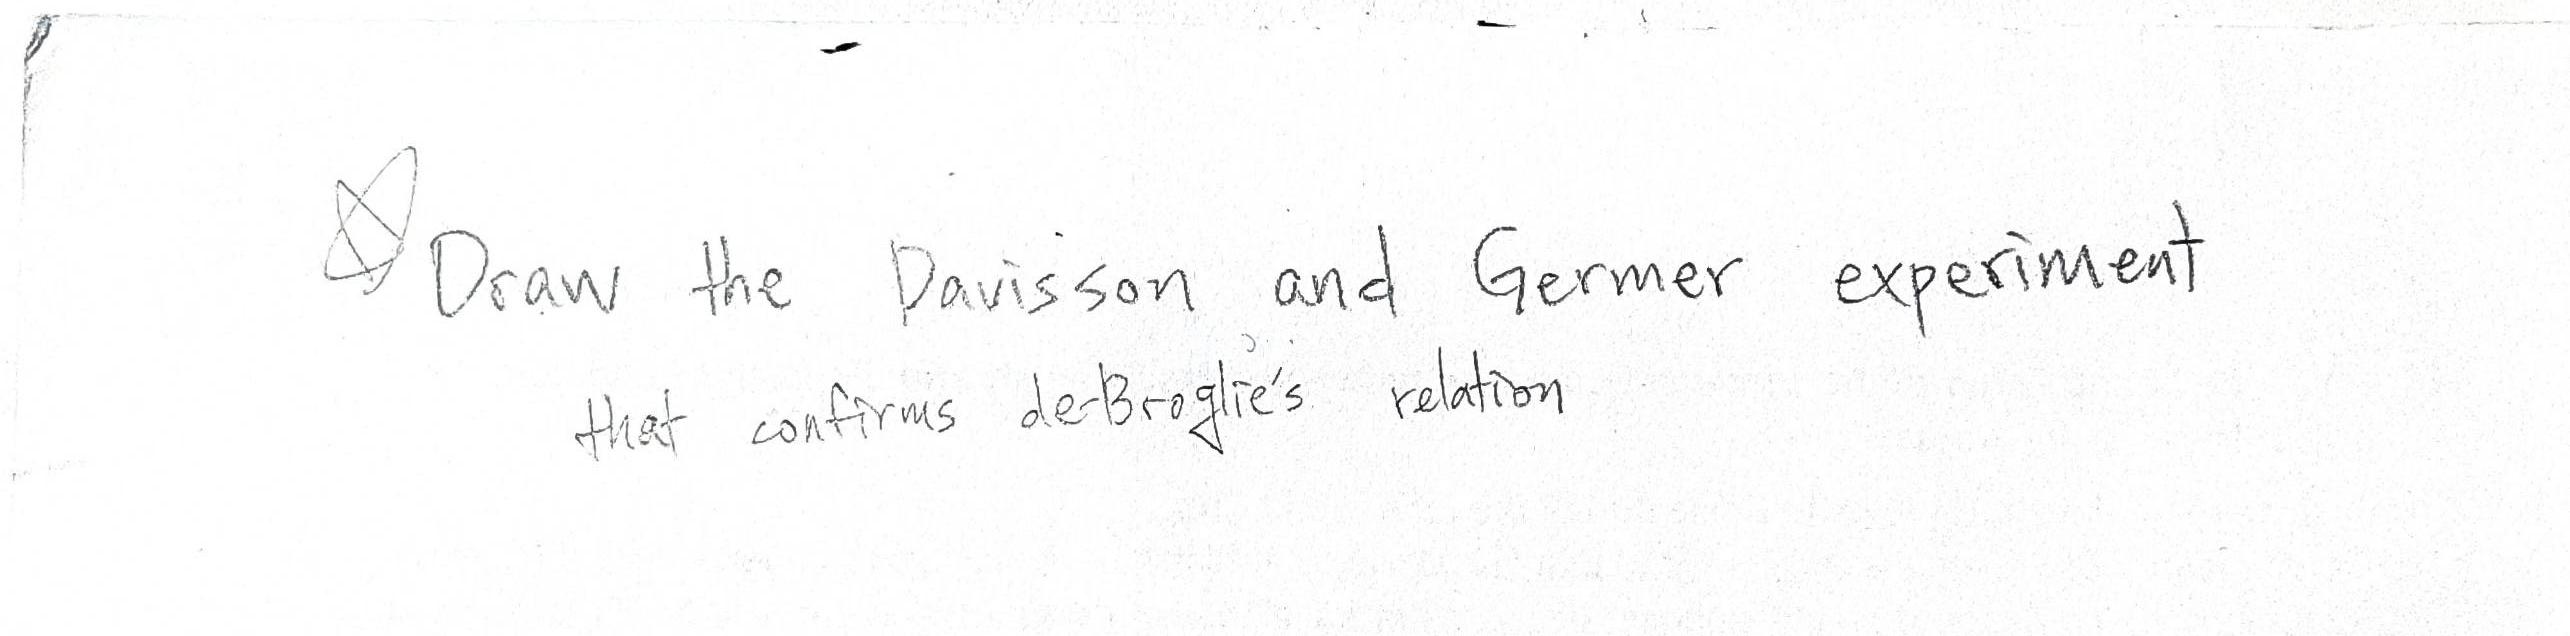 Draw the Davisson and Germer experiment
that confirms de-Broglie's relation